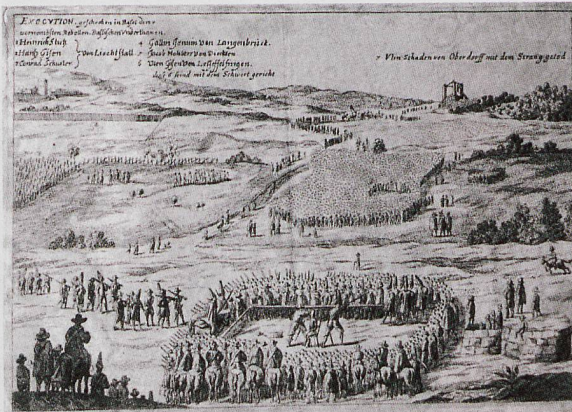 EXECVTION, geschehen in Basel den
vornembsten Rebellen Baßlischen Vnderthanen.
1 Heinrich Stutz
2 Hanß Gisen
3 Conrad Schuster
von Liechstall
4 Galli Jenni von Langenbruck.
5 Jacob Mohler von Diechten
6 Vlin Gisen von Leiffelfingen.
dise 6 sind mit dem Schwert gericht
7 Vlin Schaden von Oberdorff mit dem Strang getöd